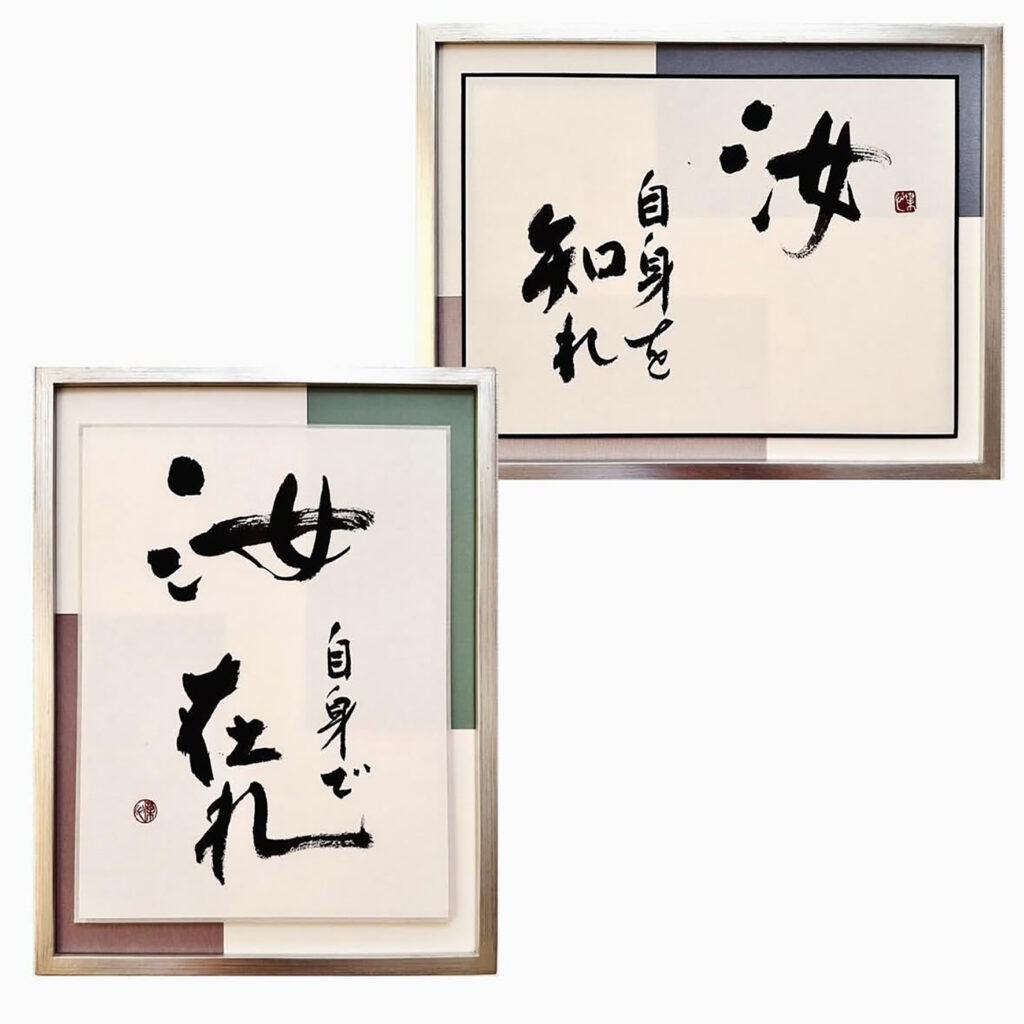 汝
自身を
知れ
汝
自身で
在れ